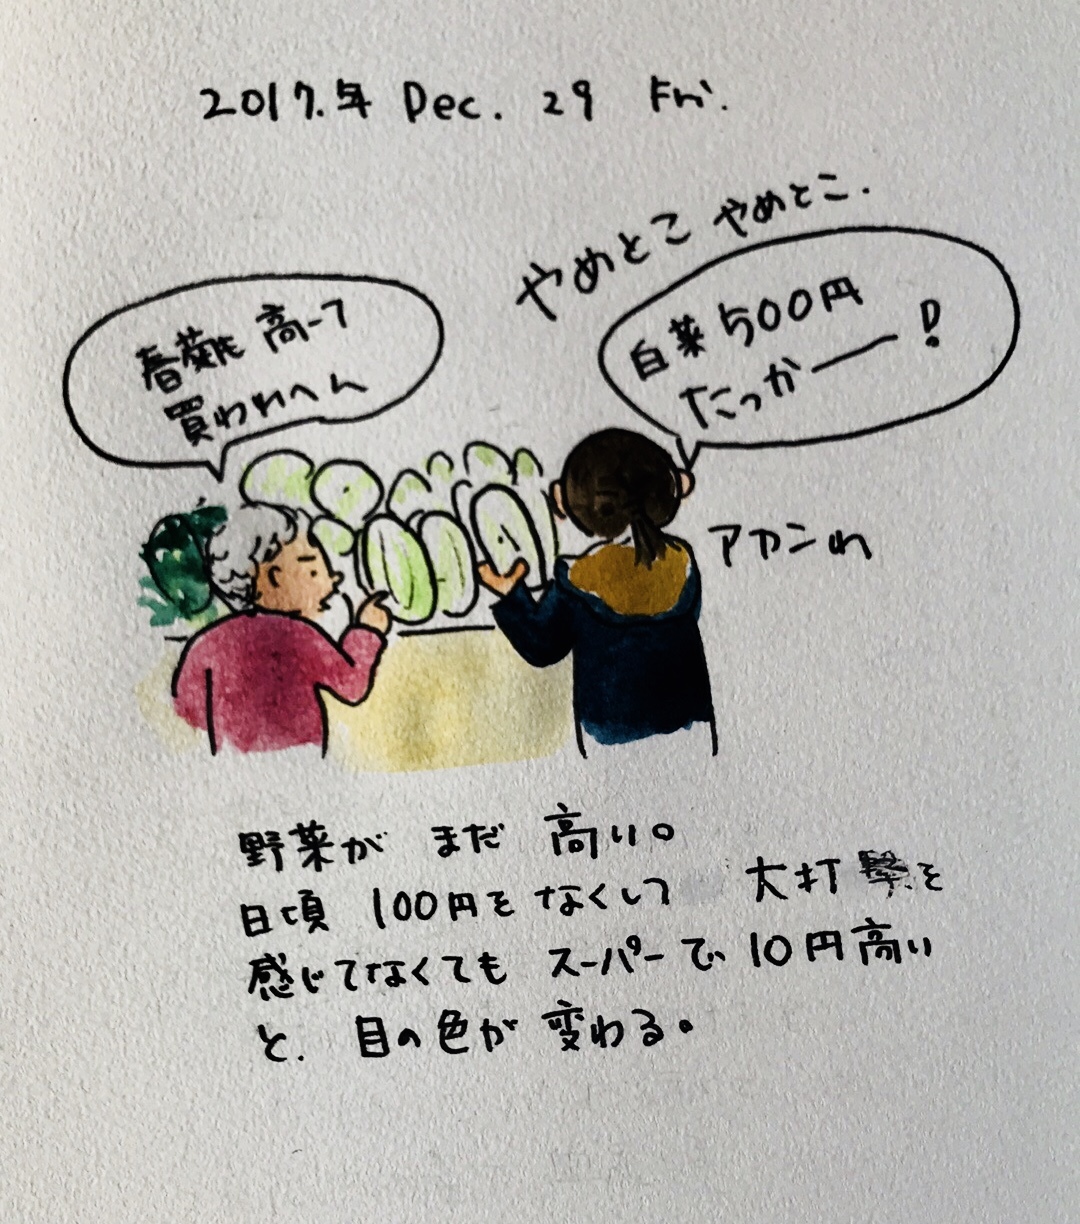 2017.年 Dec. 29 Fri.
やめとこ やめとこ.
春菊も 高ーて
買われへん
白菜 500円
たっかー!
アカンわ
野菜が まだ 高い。
日頃 100円を なくして 大打撃を
感じてなくても スーパーで 10円高い
と. 目の色が 変わる。